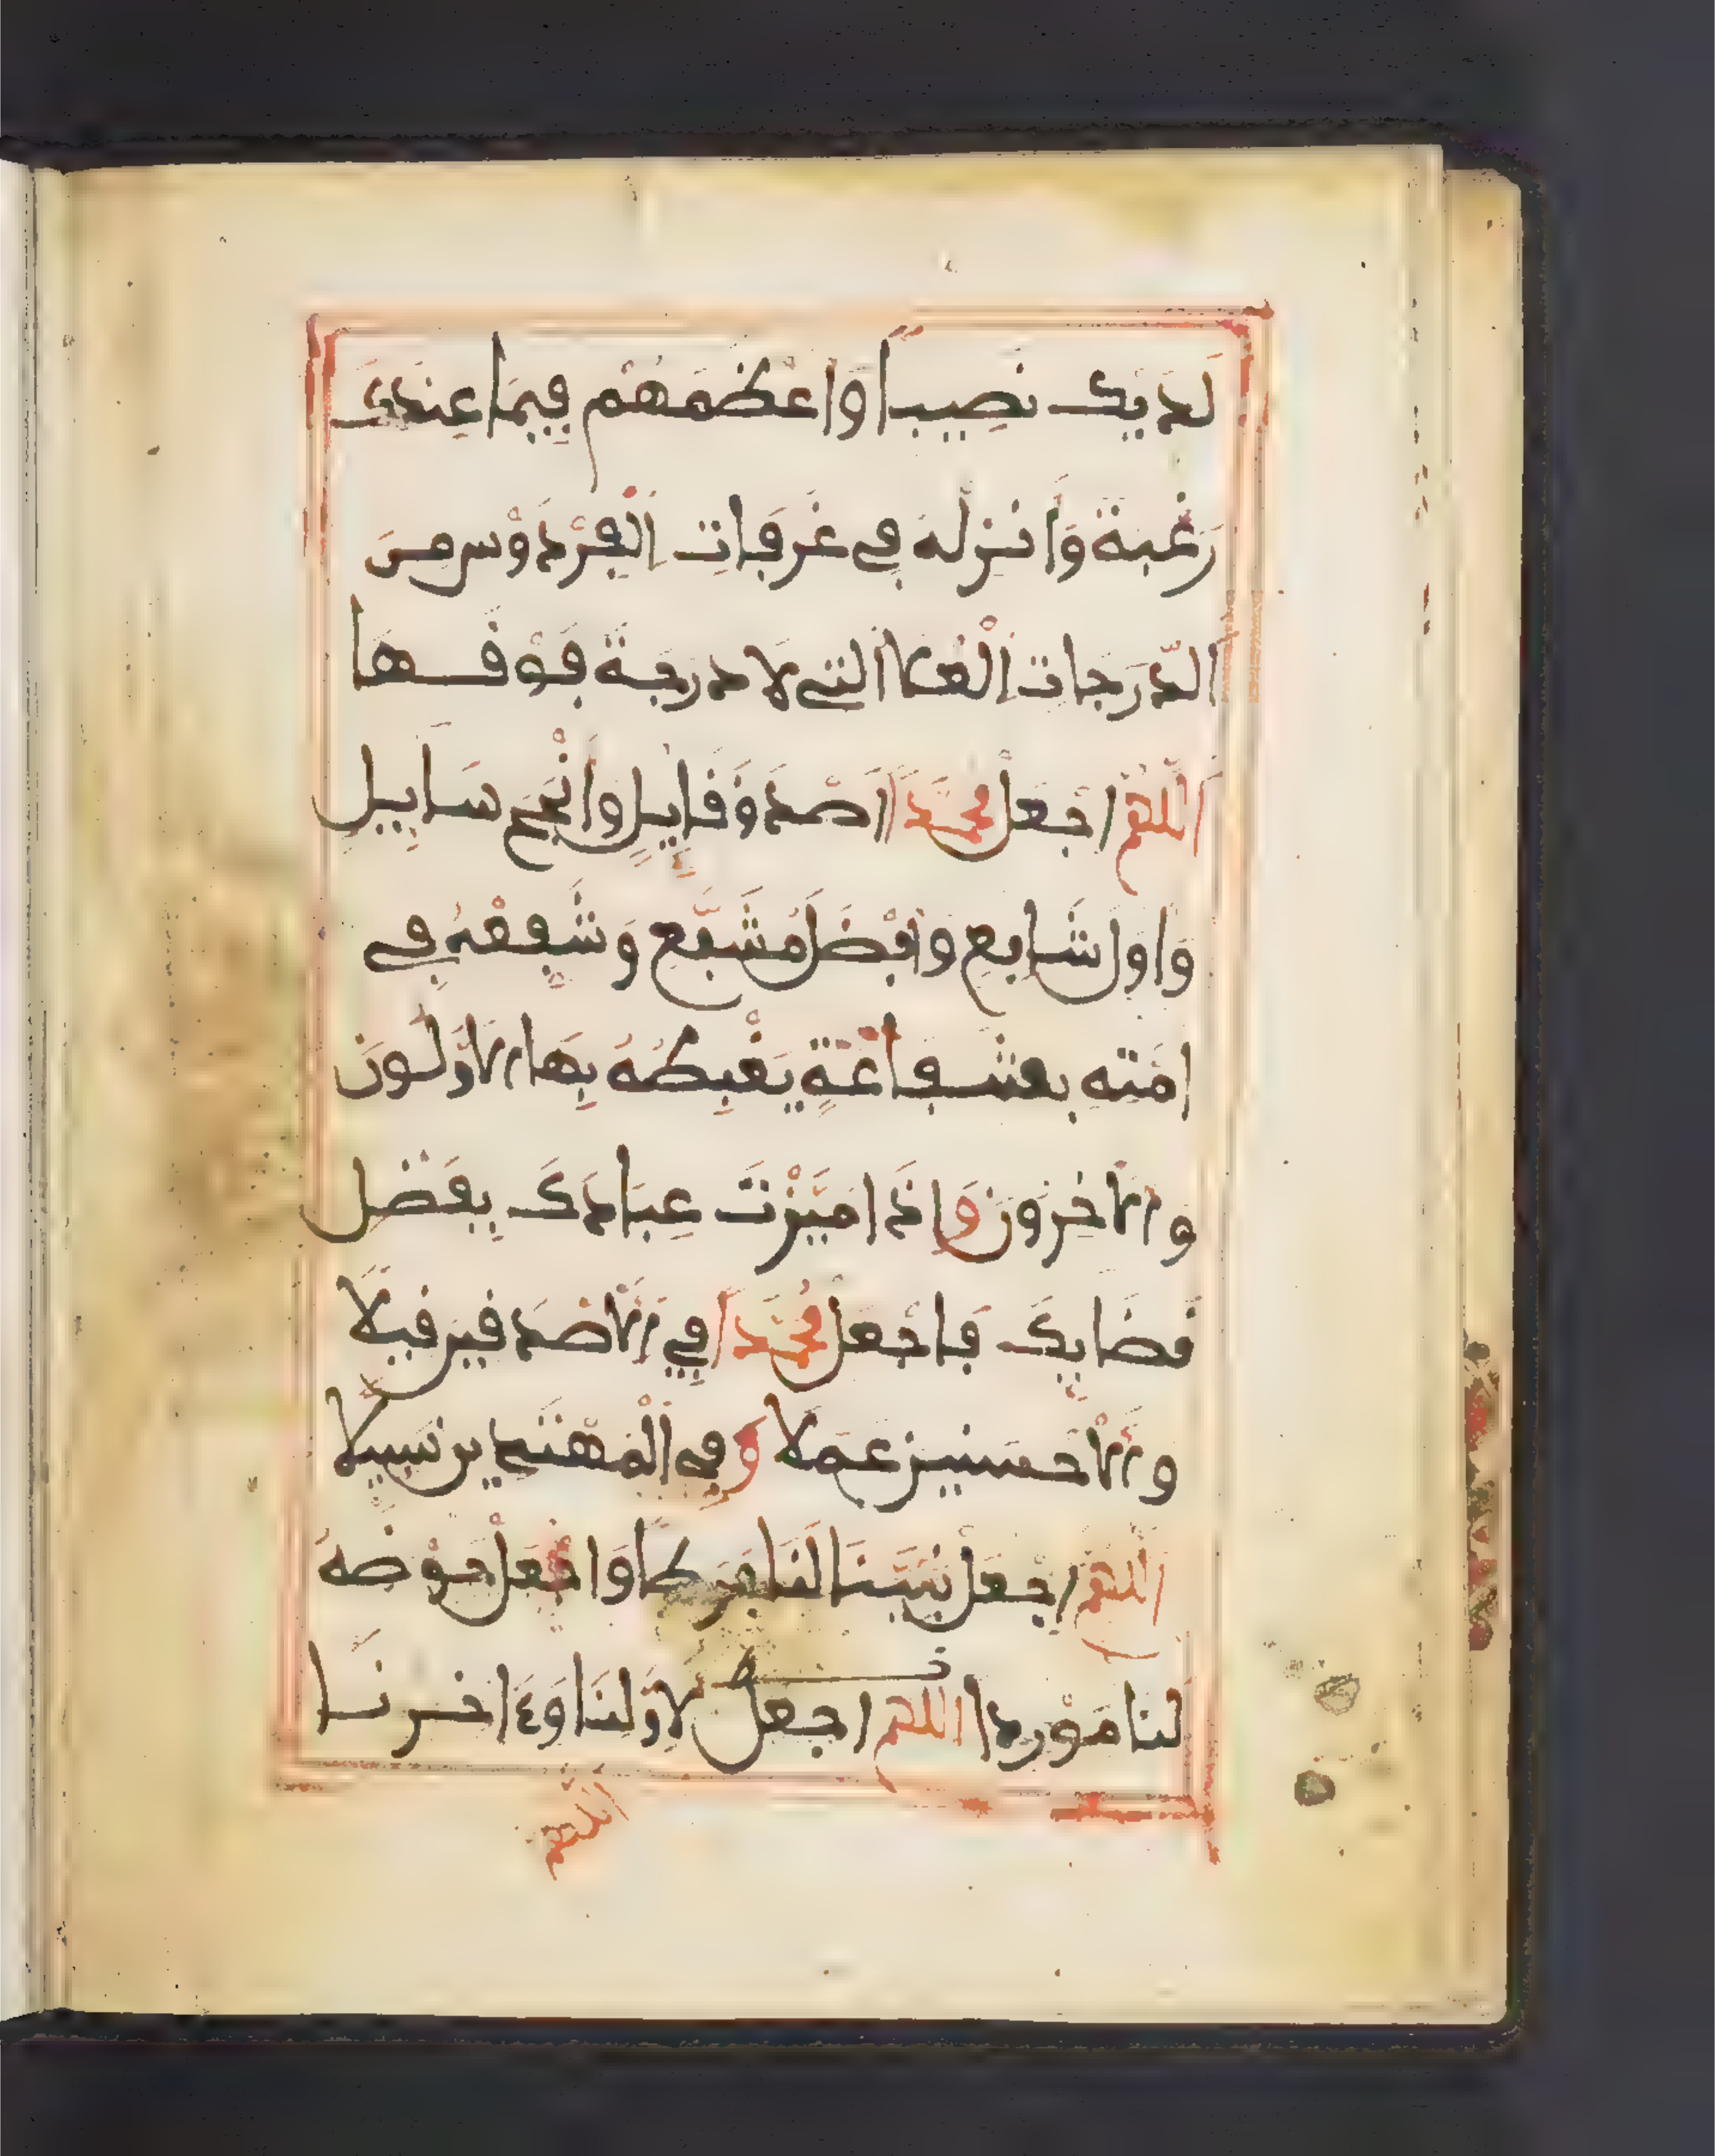 لديك نصيبا واعظمهم فيما عندك
رغبة وانزله في غرفات الفردوس من
الدرجات العلا التي لا درجة فوقها
اللهم اجعل محمدا اصدق قايل وانجح سايل
واول شافع وافضل مشفع وشفعه في
امته بشفاعة يغبطه بها الاولون
والاخرون واذا ميزت عبادك بفضل
قضايك فاجعل محمدا في الاصدقين قيلا
والاحسنين عملا وفي المهتدين سبيلا
اللهم اجعل نبينا لنا فرطا واجعل حوضه
لنا موردا اللهم اجعل لاولنا وءاخرنا
اللهم